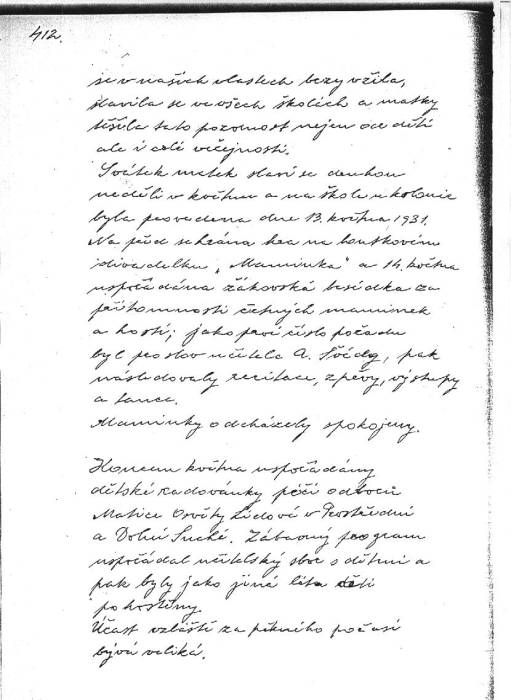 412.
se v našich vlastech brzy vžila,
slavila se ve všech školách a matky
těšila tato pozornost nejen od dětí
ale i celé veřejnosti.
Svátek matek slaví se druhou
neděli v květnu a na škole u kolonie
byla provedena dne 13. května 1931.
Na před sehrána hra na loutkovém
divadelku „Maminka" a 14. května
uspořádána žákovská besídka za
přítomnosti četných maminek
a hostí; jako prvé číslo pořadu
byl proslov učitele A. Švédy, pak
následovaly recitace, zpěvy, výstupy
a tance.
Maminky odcházely spokojeny.
Koncem května uspořádány
dětské radovánky péčí odborů
Matice Osvěty Lidové v Prostřední
a Dolní Suché. Zábavný program
uspořádal učitelský sbor s dětmi a
pak byly jako jiná léta děti
pohostěny.
Účast zvláště za pěkného počasí
bývá veliká.